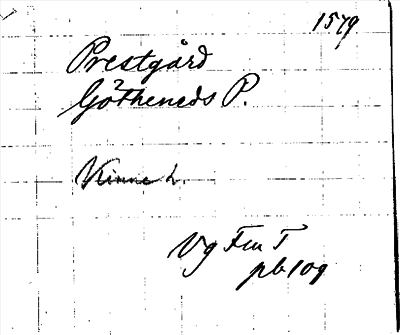 1579
Prestgård
Götheneds P.
Kinne L.
Vg Fm T
pb 109